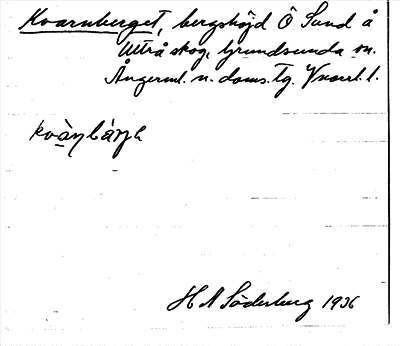 Kvarnberget, bergshöjd Ö Sund å
Ultrå skog, Grundsunda sn.
Ångerml. n. doms. tg. Vnorrl. l.
H A Söderberg 1936